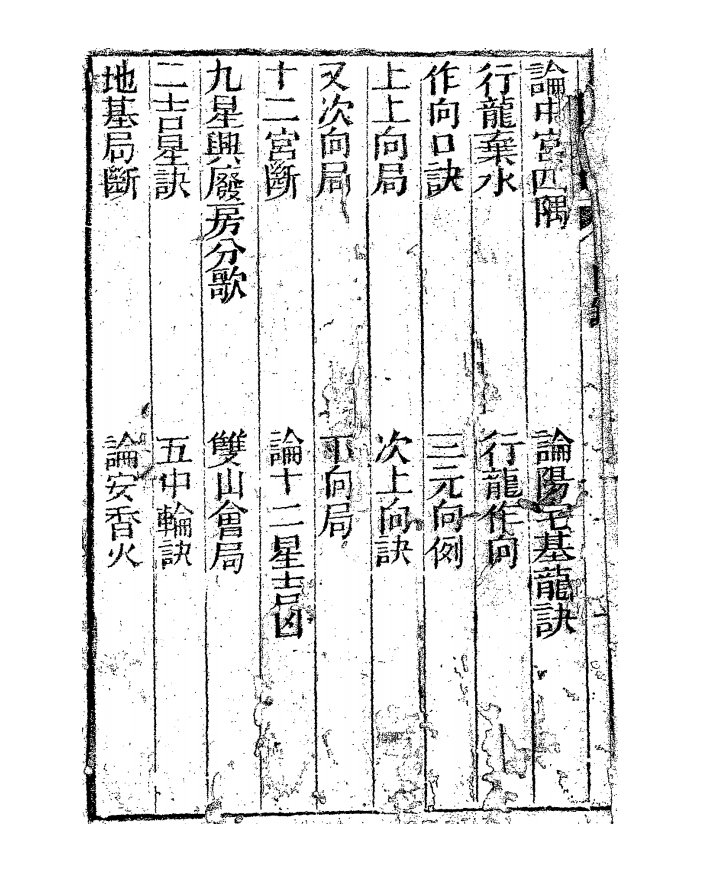 論中宮四隅　論陽宅基龍訣
行龍棄水　行龍作向
作向口訣　三元向例
上上向局　次上向訣
又次向局　下向局
十二宮斷　論十二星吉凶
九星興廢房分歌　雙山會局
二吉星訣　五中輪訣
地基局斷　論安香火